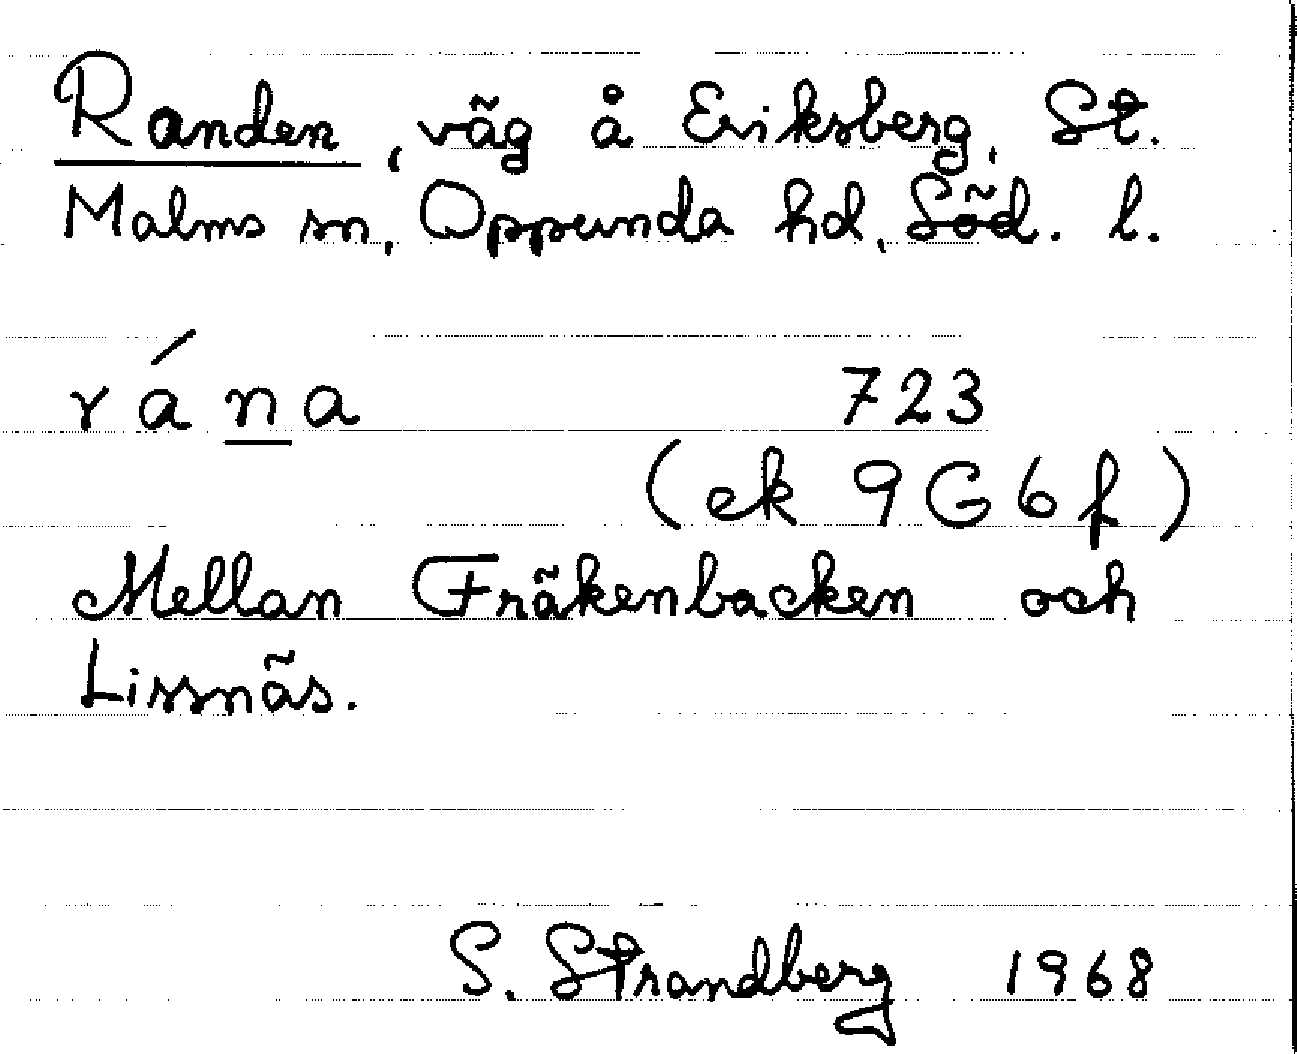 Randen, väg å Eriksberg, St.
Malms sn, Oppunda hd, Söd. l.
rána 723
(ek 9G6f)
Mellan Fräkenbacken och
Lissnäs.
S. Strandberg 1968